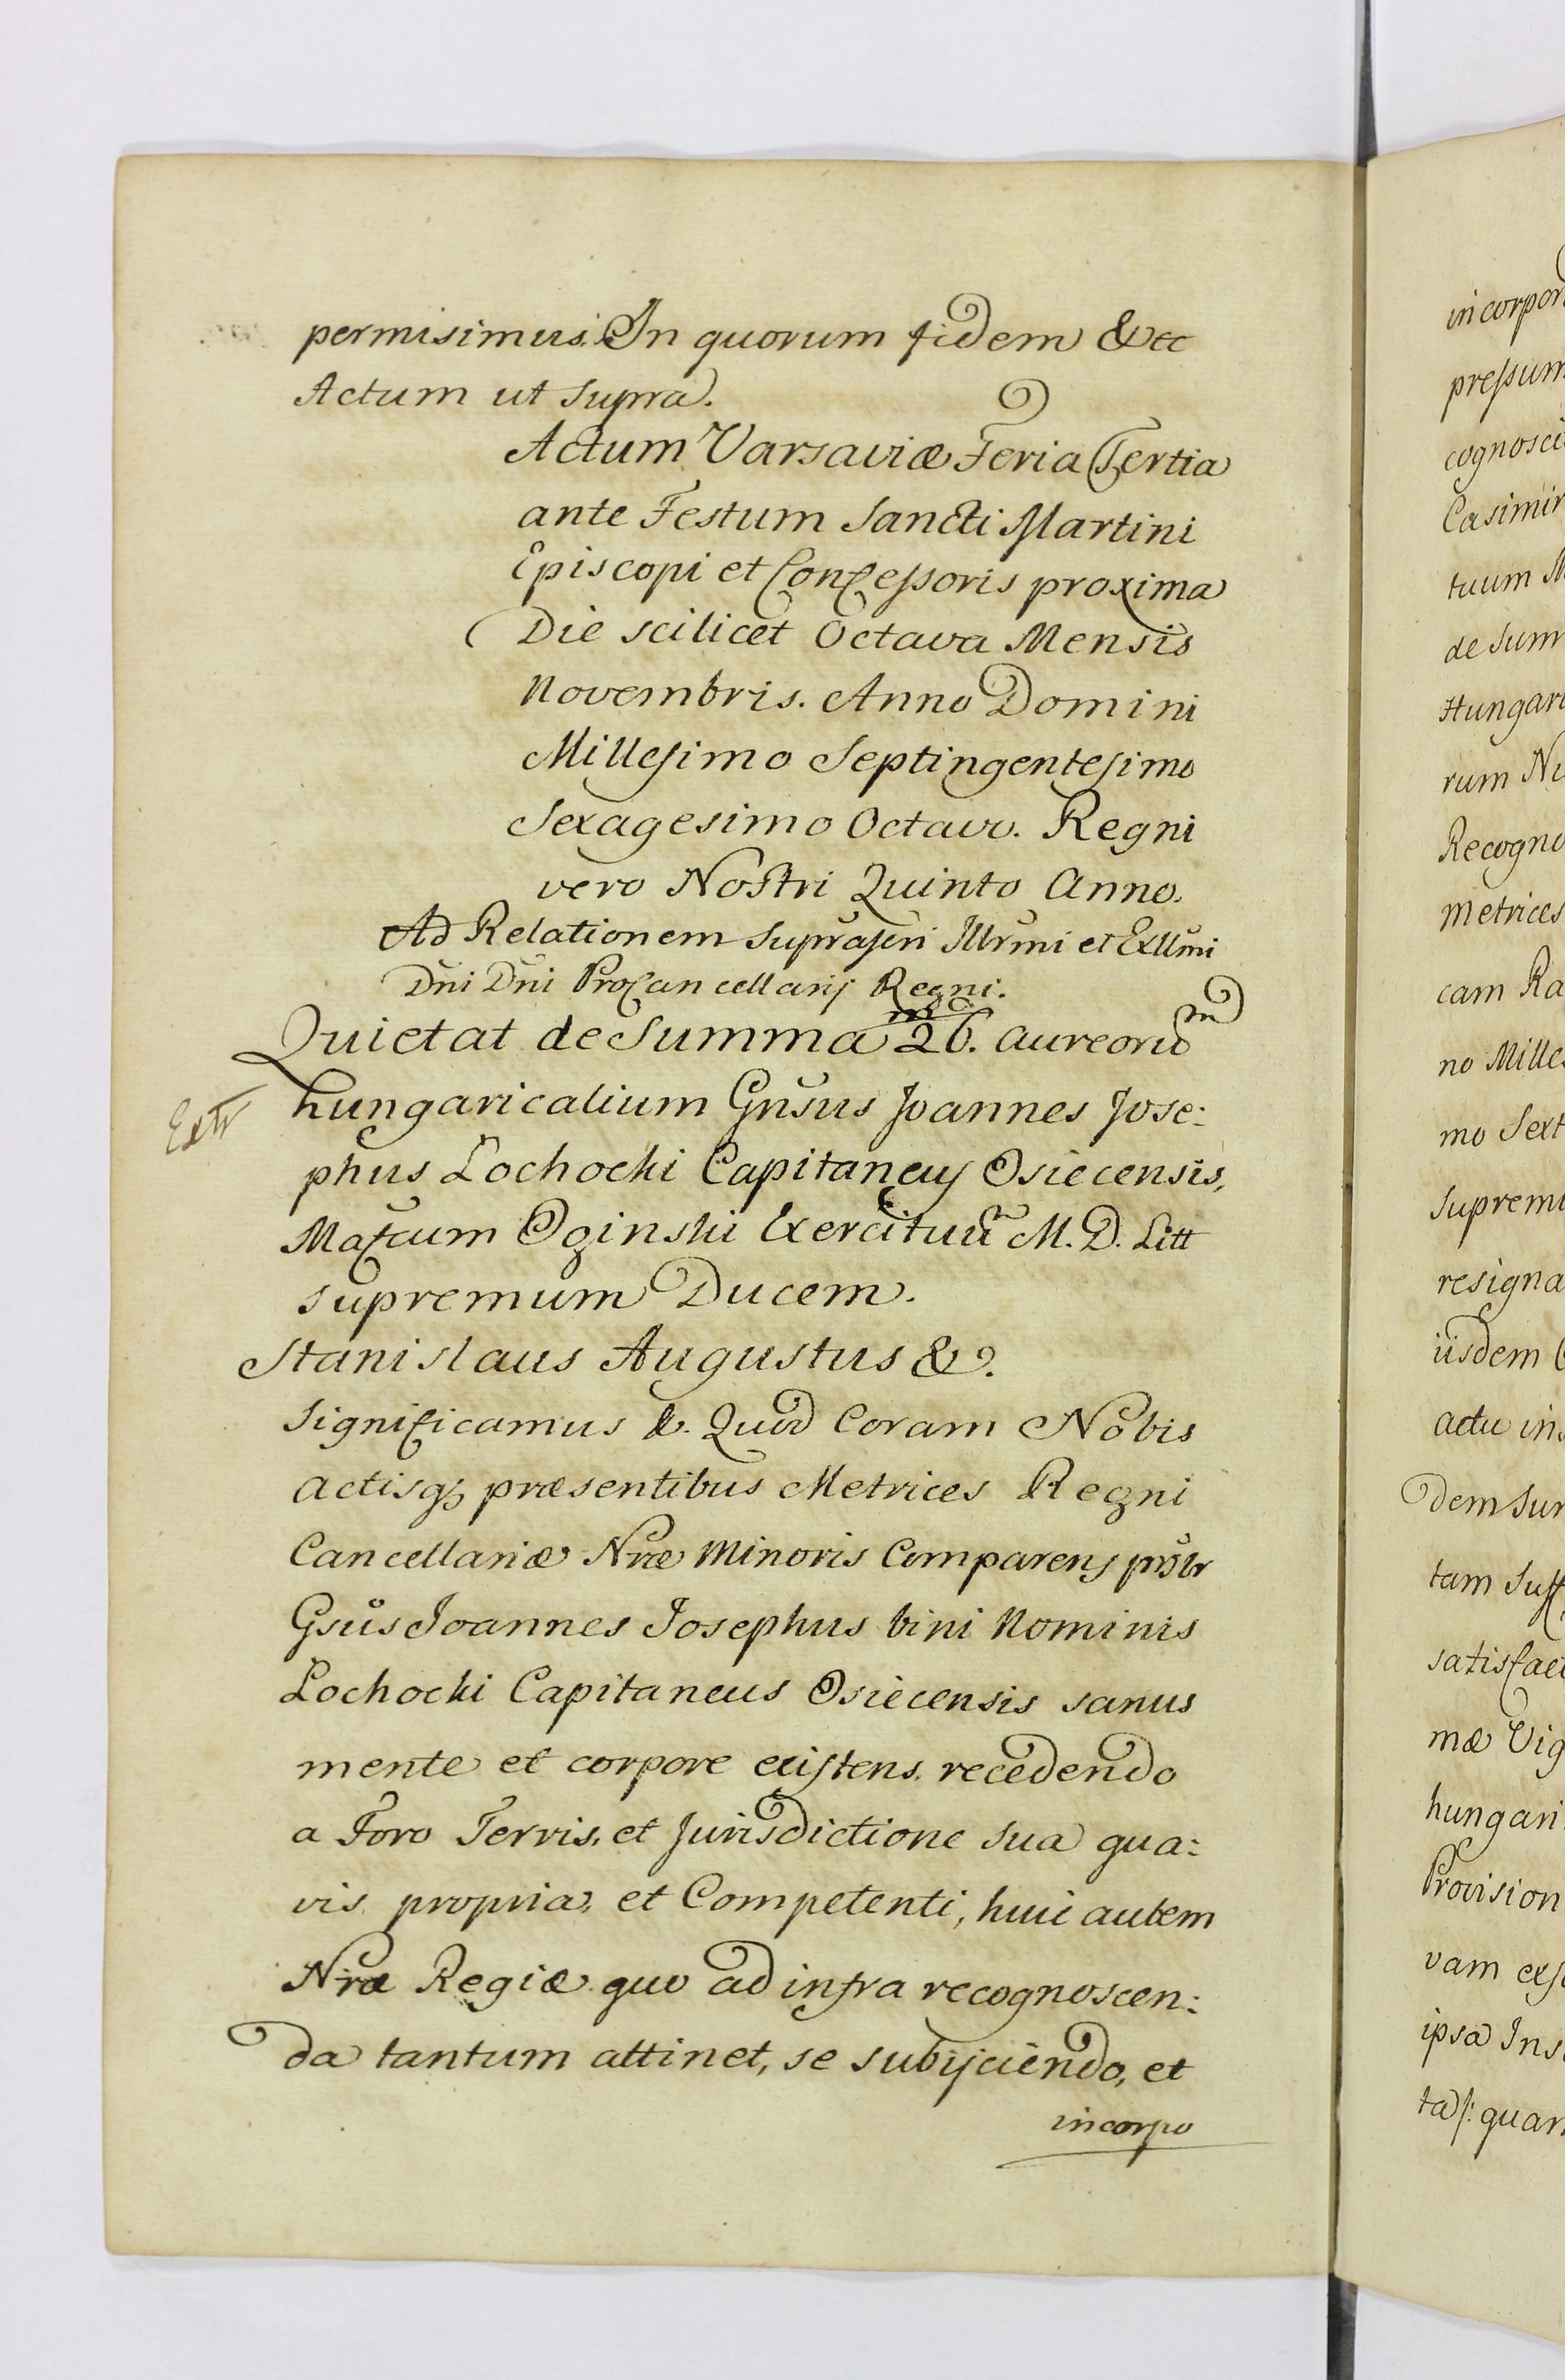 permisimus. In quorum fidem &cc
Actum ut supra.
Actum Varsaviæ Feria Tertia
ante Festum Sancti Martini
Episcopi et Confessoris proxima
Die scilicet Octava Mensis
Novembris. Anno Domini
Millesimo Septingentesimo
Sexagesimo Octavo. Regni
vero Nostri Quinto Anno.
Ad Relationem Suprascri Illrmi et Exllmi
Dni Dni ProCancellarij Regni.
Quietat de Summa 26. aureoru m
Extr
hungaricalium Gnsus Joannes Jose:
phus Lochocki Capitaneus Osiecensis,
Oginski Exercituu M. D. Litt
supremum Ducem.
Stanislaus Augustus &.
Significamus &. Quod Coram Nobis
actisq; præsentibus Metrices Regni
Cancellariæ Nræ Minoris Comparens
Gsus Joannes Josephus bini Nominis
Lochocki Capitaneus Osiecensis sanus
mente et corpore existens. recedendo
a Foro Terris, et Jurisdictione sua qua:
vis propria, et Competenti, huic autem
Nræ Regiæ quo ad infra recognoscen:
da tantum attinet, se subijciendo, et
incorpo
incorpor
pressum
cognosci
Casimir
tuum M
de Sum
Hungari
rum Nu
Recogno
metrices
cam Ra
no Mille
mo Sext
Supremu
resigna
iisdem
actu ins
dem Sum
tam Suff
satisfact
mæ Vig
hungari
Provision
vam
ipsa Ins
ta/: quar